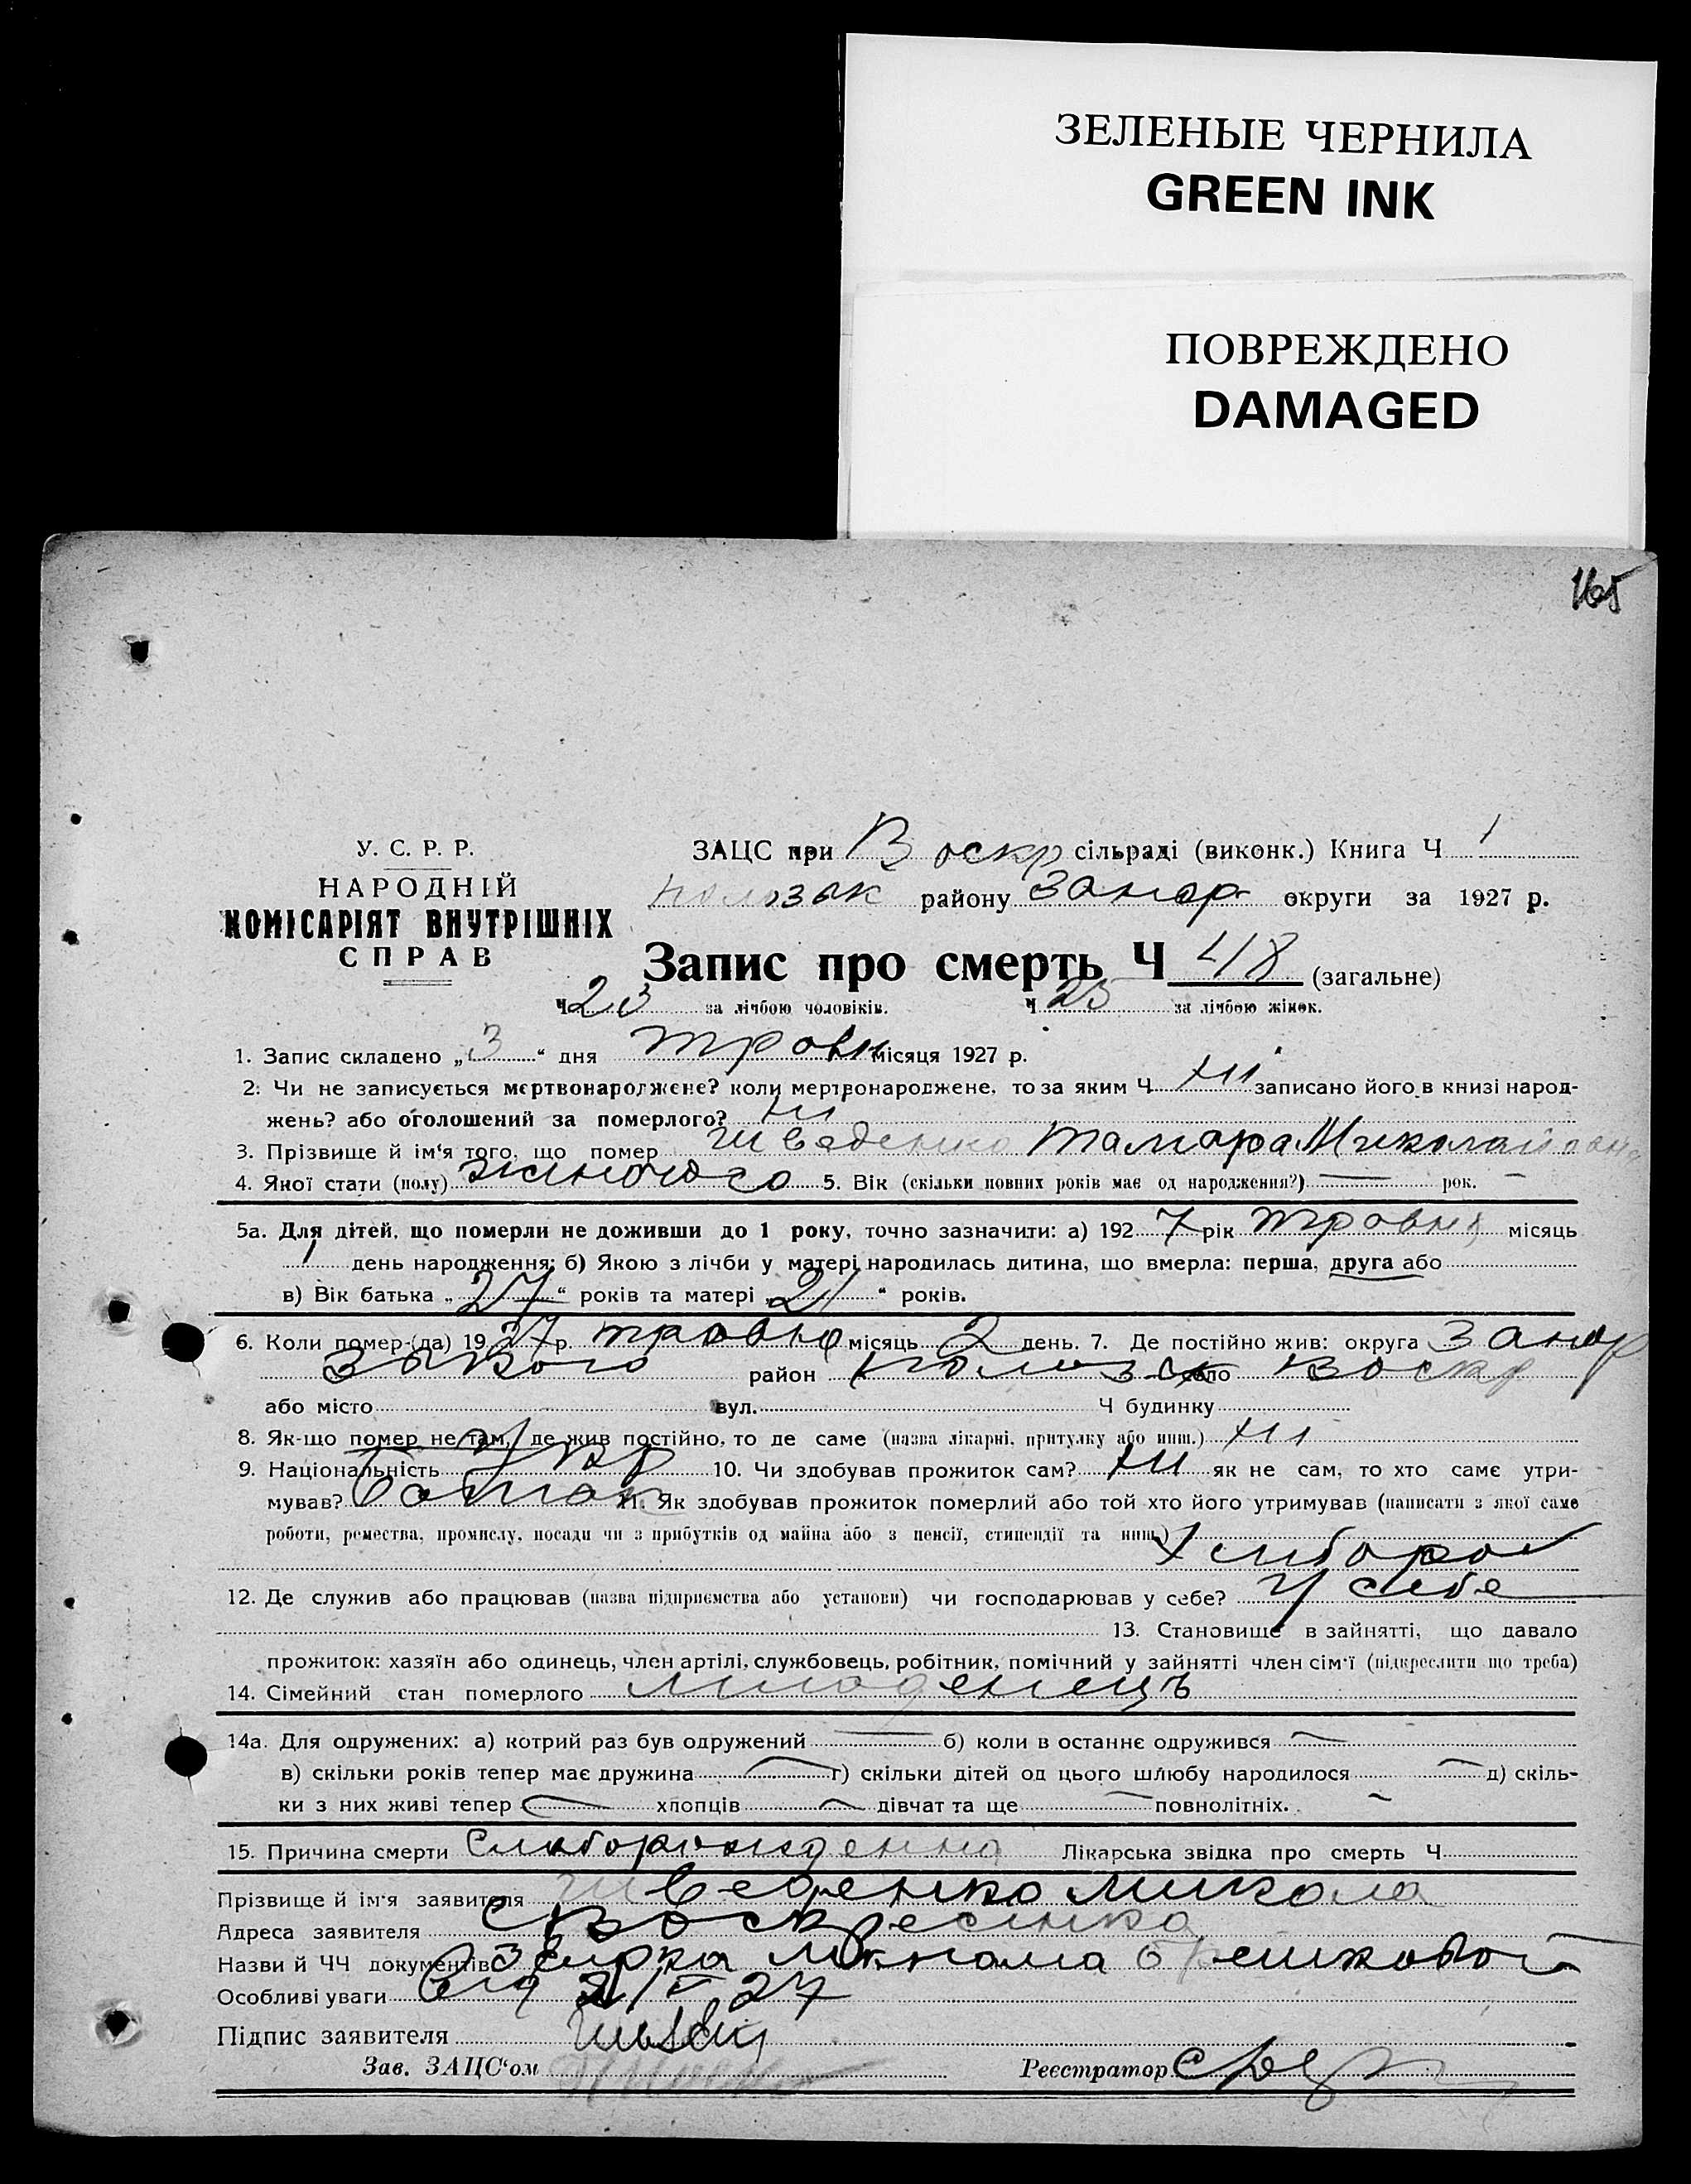 ЗЕЛЕНЫЕ ЧЕРНИЛА
GREEN INK
ПОВРЕЖДЕНО
DAMAGED
165
У. С. Р. Р.
НАРОДНІЙ
КОМІСАРІЯТ ВНУТРІШНІХ
СПРАВ
ЗАЦС при Воскр сільраді (виконк.) Книга Ч 1
району Запор округи за 1927 р.
Запис про смерть Ч 48 (загальне)
Ч 23 за лічбою чоловіків. Ч 25 за лічбою жінок.
1. Запис складено „3“ дня травн місяця 1927 р.
2. Чи не записується мертвонароджене? коли мертвонароджене, то за яким Ч ні записано його в книзі народ-
жень? або оголошений за померлого? ні
3. Прізвище й ім'я того, що помер Шведенко Тамара Миколаївна
4. Якої стати (полу) жіночого 5. Вік (скільки повних років має од народження?) — рок.
5а. Для дітей, що померли не доживши до 1 року, точно зазначити: а) 1927 рік травня місяць
1 день народження; б) Якою з лічби у матері народилась дитина, що вмерла: перша, друга або
в) Вік батька „27“ років та матері „21“ років.
6. Коли помер-(да) 1927 р. травня місяць 2 день. 7. Де постійно жив: округа Запор
зького район село Воскр
або місто вул. Ч будинку
8. Як-що помер не там, де жив постійно, то де саме (назва лікарні, притулку або инш.) ні
9. Національність Укр 10. Чи здобував прожиток сам? ні як не сам, то хто саме утри-
мував? Батько 11. Як здобував прожиток померлий або той хто його утримував (написати з якої саме
роботи, ремества, промислу, посади чи з прибутків од майна або з пенсії, стипендії та инш.)
Хлібороб
12. Де служив або працював (назва підприємства або установи) чи господарював у себе? У себе
13. Становище в зайнятті, що давало
прожиток: хазяїн або одинець, член артілі, службовець, робітник, помічний у зайнятті член сім'ї (підкреслити що треба)
14. Сімейний стан померлого младенець
14а. Для одружених: а) котрий раз був одружений — б) коли в останнє одружився —
в) скільки років тепер має дружина — г) скільки дітей од цього шлюбу народилося — д) скіль-
ки з них живі тепер — хлопців — дівчат та ще — повнолітніх. —
15. Причина смерти Слаборожденна Лікарська звідка про смерть Ч
Прізвище й ім'я заявителя Шведенко Микола
Адреса заявителя с Воскресенка
Назви й ЧЧ документів
Особливі уваги 27
Підпис заявителя
Зав. ЗАЦС'ом Реєстратор